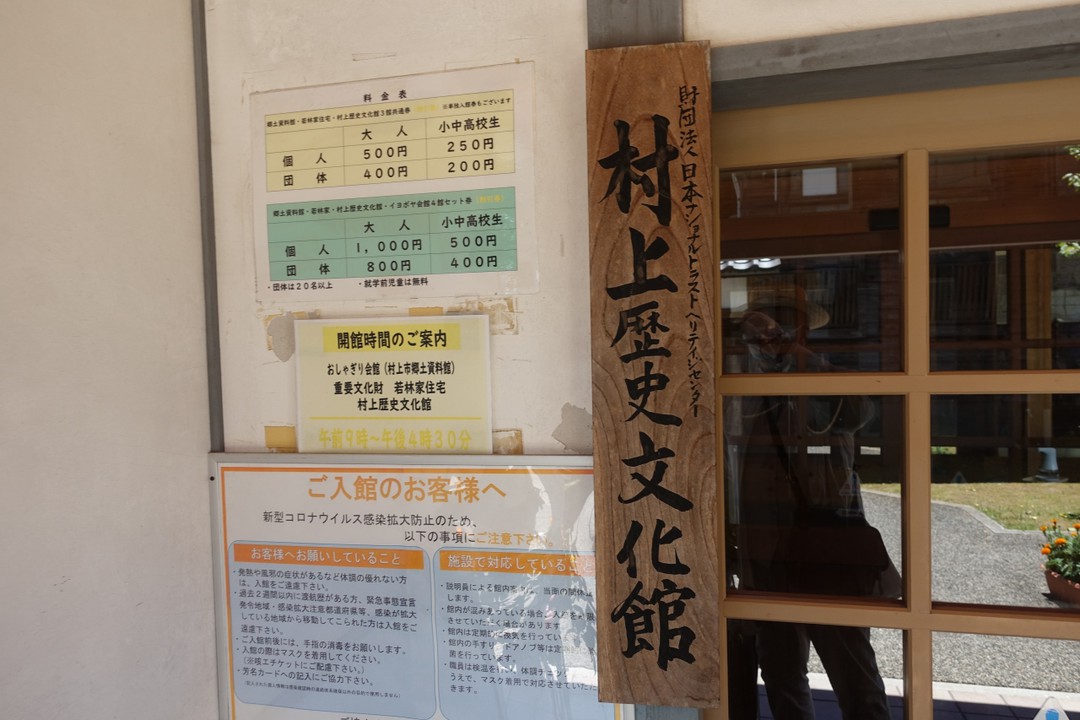 料金表
郷土資料館・若林家住宅・村上歴史文化館3館共通券
※単独入館券もございます
大人 小中高校生
個人 500円 250円
団体 400円 200円
郷土資料館・若林家・村上歴史文化館・イヨボヤ会館4館セット券
大人 小中高校生
個人 1,000円 500円
団体 800円 400円
・団体は20名以上 ・就学前児童は無料
開館時間のご案内
おしゃぎり会館（村上市郷土資料館）
重要文化財 若林家住宅
村上歴史文化館
午前9時～午後4時30分
ご入館のお客様へ
新型コロナウイルス感染拡大防止のため、
以下の事項にご注意下さい。
お客様へお願いしていること
・発熱や風邪の症状があるなど体調の優れない方
は、入館をご遠慮下さい。
・過去2週間以内に渡航歴がある方、緊急事態宣言
発令地域・感染拡大注意都道府県等、感染が拡大
している地域から移動してこられた方は入館をご
遠慮下さい。
・ご入館前後には、手指の消毒をお願いします。
・入館の際はマスクを着用してください。
（※咳エチケットにご配慮下さい。）
・芳名カードへの記入にご協力下さい。
施設で対応しているこ
・説明員による館内案 、当面の間休止
します。
・館内が混みあっている場合 入館を制限
させていただく場合があります。
・館内は定期的に換気を行ってい
・館内の手すり ドアノブ等は定
菌を行っています。
・職員は検温を行い、体調チェック
うえで、マスク着用で対応させていただ
きます。
財団法人日本ナショナルトラストヘリテイジセンター
村上歴史文化館